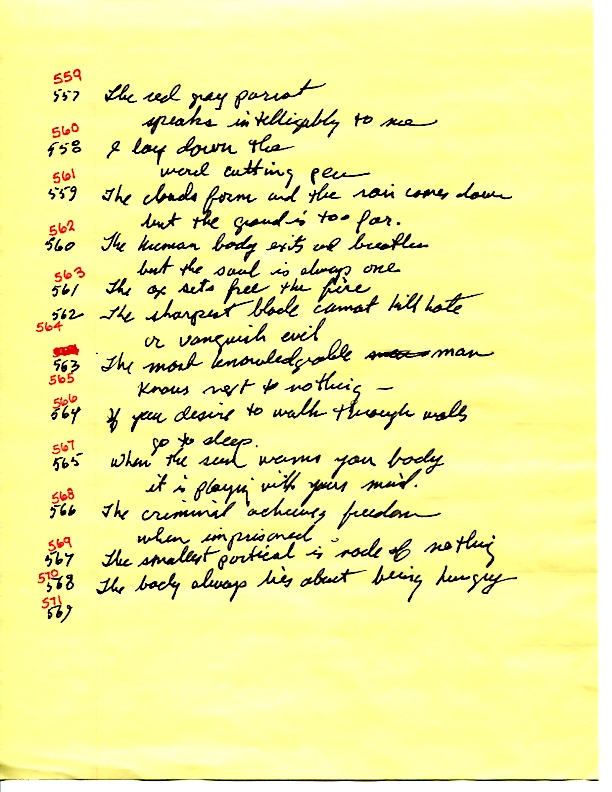 559
557 The red gray parrot
speaks intelligably to me
560
558 I lay down the
word cutting pen
561
559 The clouds form and the rain comes down
but the ground is too far.
562
560 The human body exits and breathes
but the soul is always one
563
561 The ox sets free the fire
562 The sharpest blade cannot kill hate
564
or vanquish evil
563 The most knowledgeable man
565
knows next to nothing —
566
564 If you desire to walk through walls
go to sleep.
567
565 When the sun warms your body
it is playing with your mind.
568
566 The criminal achieves freedom
when imprisoned
569
567 The smallest is made of nothing
570
568 The body always lies about being hungry
571
569